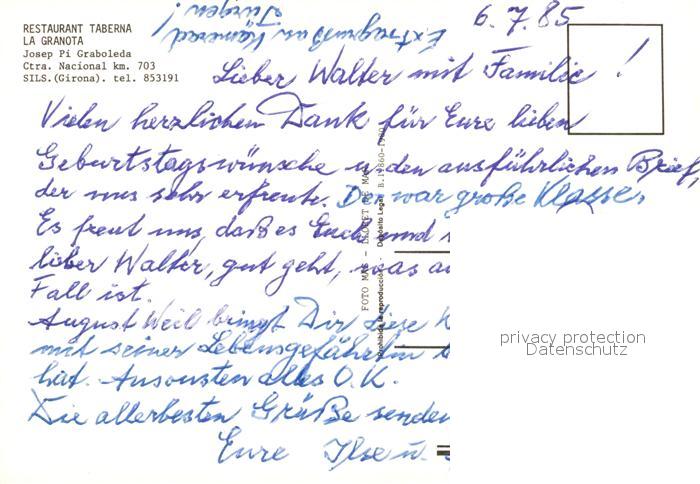 RESTAURANT TABERNA
LA GRANOTA
Josep Pi Graboleda
Ctra. Nacional km. 703
SILS.(Girona). tel. 853191
Extragruß an Kamerad
Jürgen!
6.7.85
Lieber Walter mit Familie!
Vielen herzlichen Dank für Eure lieben
Geburtstagswünsche u. den ausführlichen Brief,
der uns sehr erfreute. Der war große Klasse.
Es freut uns, daß es Euch und
lieber Walter, gut geht, was
Fall ist.
August Weil bringt Dir diese
mit seiner Lebensgefährtin
hat. Ansonsten alles O.K.
Die allerbesten Grüße senden
Eure Ilse u.
FOTO MAS - LLORET DE MAR
Prohibida la reproducción - Depósito Legal B.
privacy protection
Datenschutz